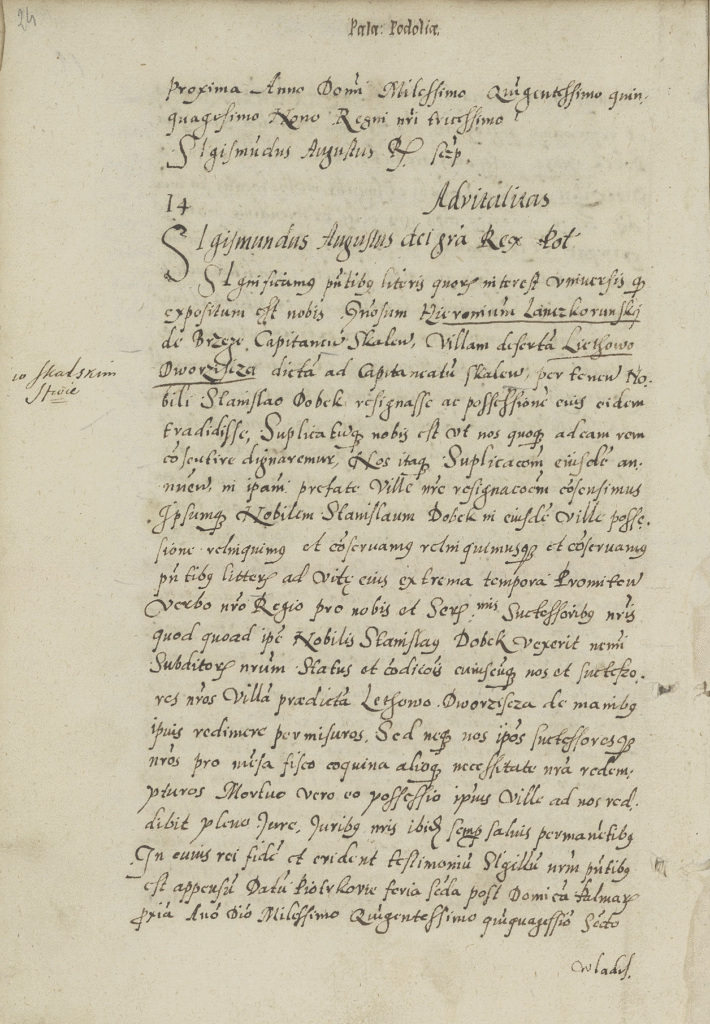 24
Pala: Podoliæ.
Proxima Anno Domi Milessimo Quigentessimo quin-
quagesimo Nono Regni nri tricessimo
Sigismudus Augustus Rx scrp.
14 Advitalitas
Sigismundus Augustus dei gra Rex Pol
Significamq pntibq literis quorx interest vniuersis q
expositum est nobis Gnosum Hieronium Lanczkorunskj
de Brzeze Capitaneu Skalen, Villam deserta Liethowo
Dworzisza dicta ad Capitaneatu skalen, per tenen No-
10 skalskim
Stwie
bili Stanislao Dobek resignasse ac possessione eius eidem
tradidisse, Suplicatuq nobis est vt nos quoq ad eam rem
cosentire dignaremur, Nos itaq Suplicacom eiusde an-
nuen, in ipam prefate Ville nre resignacoem cosensimus
Ipsumq Nobilem Stanislaum Dobek in eiusde Ville posse-
sione relinquimq et coservamq relinquimusq et coservamq
pntibq litterx ad vitę eius extrema tempora Promiten
Verbo nro Regio pro nobis et Serx mis Successoribq nris
quod quoad ipe Nobilis Stanislaq Dobek vexerit nemi
Subditorx nrum Status et codicois cuiuscuq nos et sucteszo-
res nros Villa prædicta Lethowo Dworzisza de manibq
ipuis redimere permisuros, Sed neq nos ipos successoresq
nros pro mesa fisco coquina alioq necessitate nra redem-
pturos Mortuo vero eo possessio ipius Ville ad nos red-
dibit pleno Jure, Juribq nris ibid semp saluis permanetibq
In cuius rei fide et evident testimoniu Sigillu nrm pntibq
est appensu Datu Piotrkovie feria scda post Domica Palmarx
pxia Ano Dio Milessimo Quigentessimo quiquagessio Scdo
wladis.